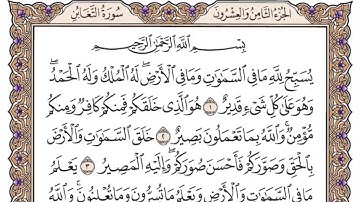 الجزء الثامن والعشرون
سورة التغابن
بِسْمِ اللَّهِ الرَّحْمَٰنِ الرَّحِيمِ
يُسَبِّحُ لِلَّهِ مَا فِي السَّمَٰوَٰتِ وَمَا فِي الْأَرْضِ ۖ لَهُ الْمُلْكُ وَلَهُ الْحَمْدُ ۖ
وَهُوَ عَلَىٰ كُلِّ شَيْءٍ قَدِيرٌ ١ هُوَ الَّذِي خَلَقَكُمْ فَمِنكُمْ كَافِرٌ وَمِنكُم
مُّؤْمِنٌ ۚ وَاللَّهُ بِمَا تَعْمَلُونَ بَصِيرٌ ٢ خَلَقَ السَّمَٰوَٰتِ وَالْأَرْضَ
بِالْحَقِّ وَصَوَّرَكُمْ فَأَحْسَنَ صُوَرَكُمْ ۖ وَإِلَيْهِ الْمَصِيرُ ٣ يَعْلَمُ
مَا فِي السَّمَٰوَٰتِ وَالْأَرْضِ وَيَعْلَمُ مَا تُسِرُّونَ وَمَا تُعْلِنُونَ ۚ وَاللَّهُ